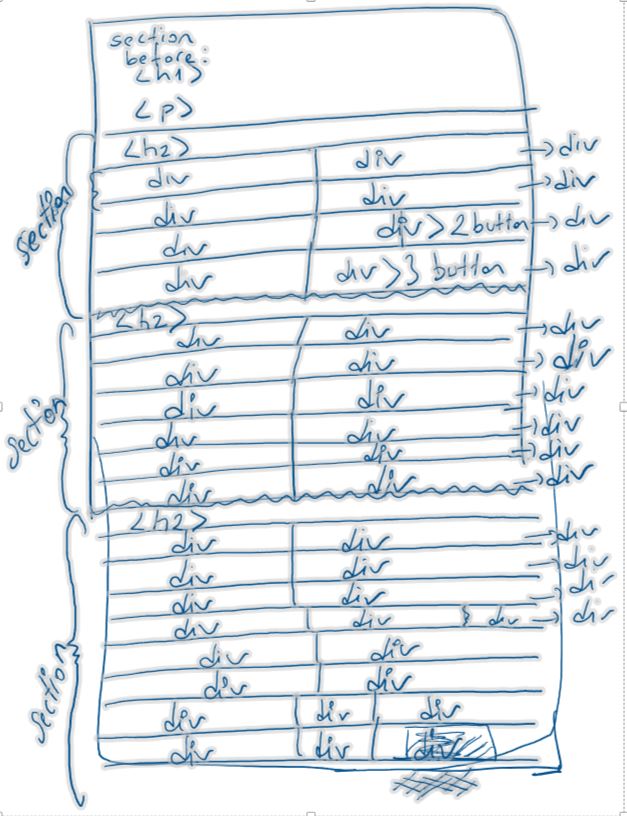 section
before:
<h1>
<p>
section
<h2>
div div → div
div div → div
div div > 2 button → div
div div > 3 button → div
section
<h2>
div div → div
div div → div
div div → div
div div → div
div div → div
div div → div
section
<h2>
div div → div
div div → div
div div → div
div div div → div
div div
div div
div div div
div div div